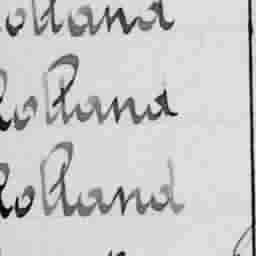 olland
Rolland
Rolland